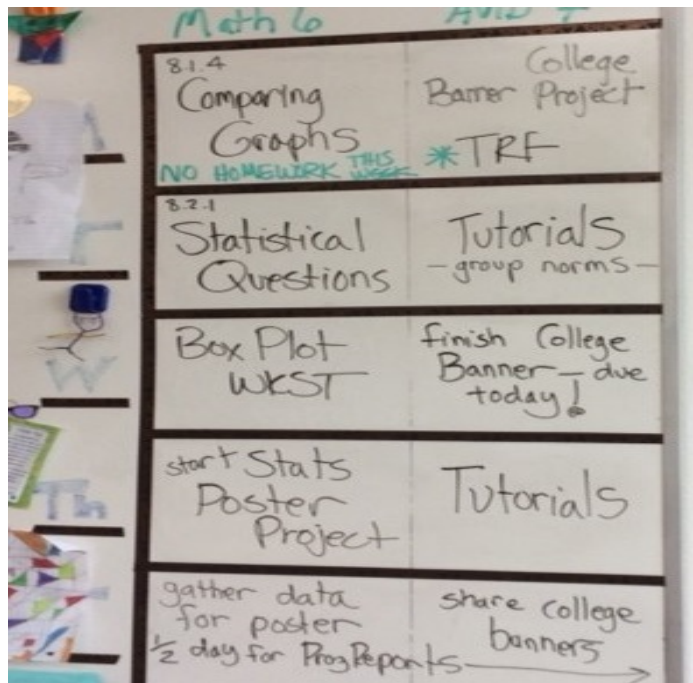 Math 6
8.1.4
Comparing
Graphs
NO HOMEWORK THIS WEEK
College
Banner Project
*TRF
8.2.1
Statistical
Questions
Tutorials
- group norms -
W
Box Plot
WKST
finish College
Banner - due
today!
Th
start Stats
Poster
Project
Tutorials
gather data
for poster
1/2 day for Prog Reports
share college
banners